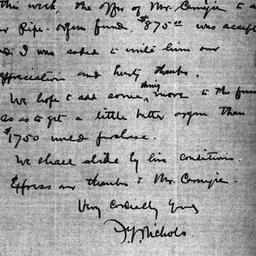 this week. the offer of Mr. Carnegie to a
r Pipe-organ fund, $875.00 was accept
d. I was asked to write him our
appreciation and hearty thanks.
We hope to add some thing more to the fun
so as to get a little better organ than
$1750 would purchase.
We shall abide by his conditions.
Express our thanks to Mr. Carnegie.
Very Cordially Yours
Nichols